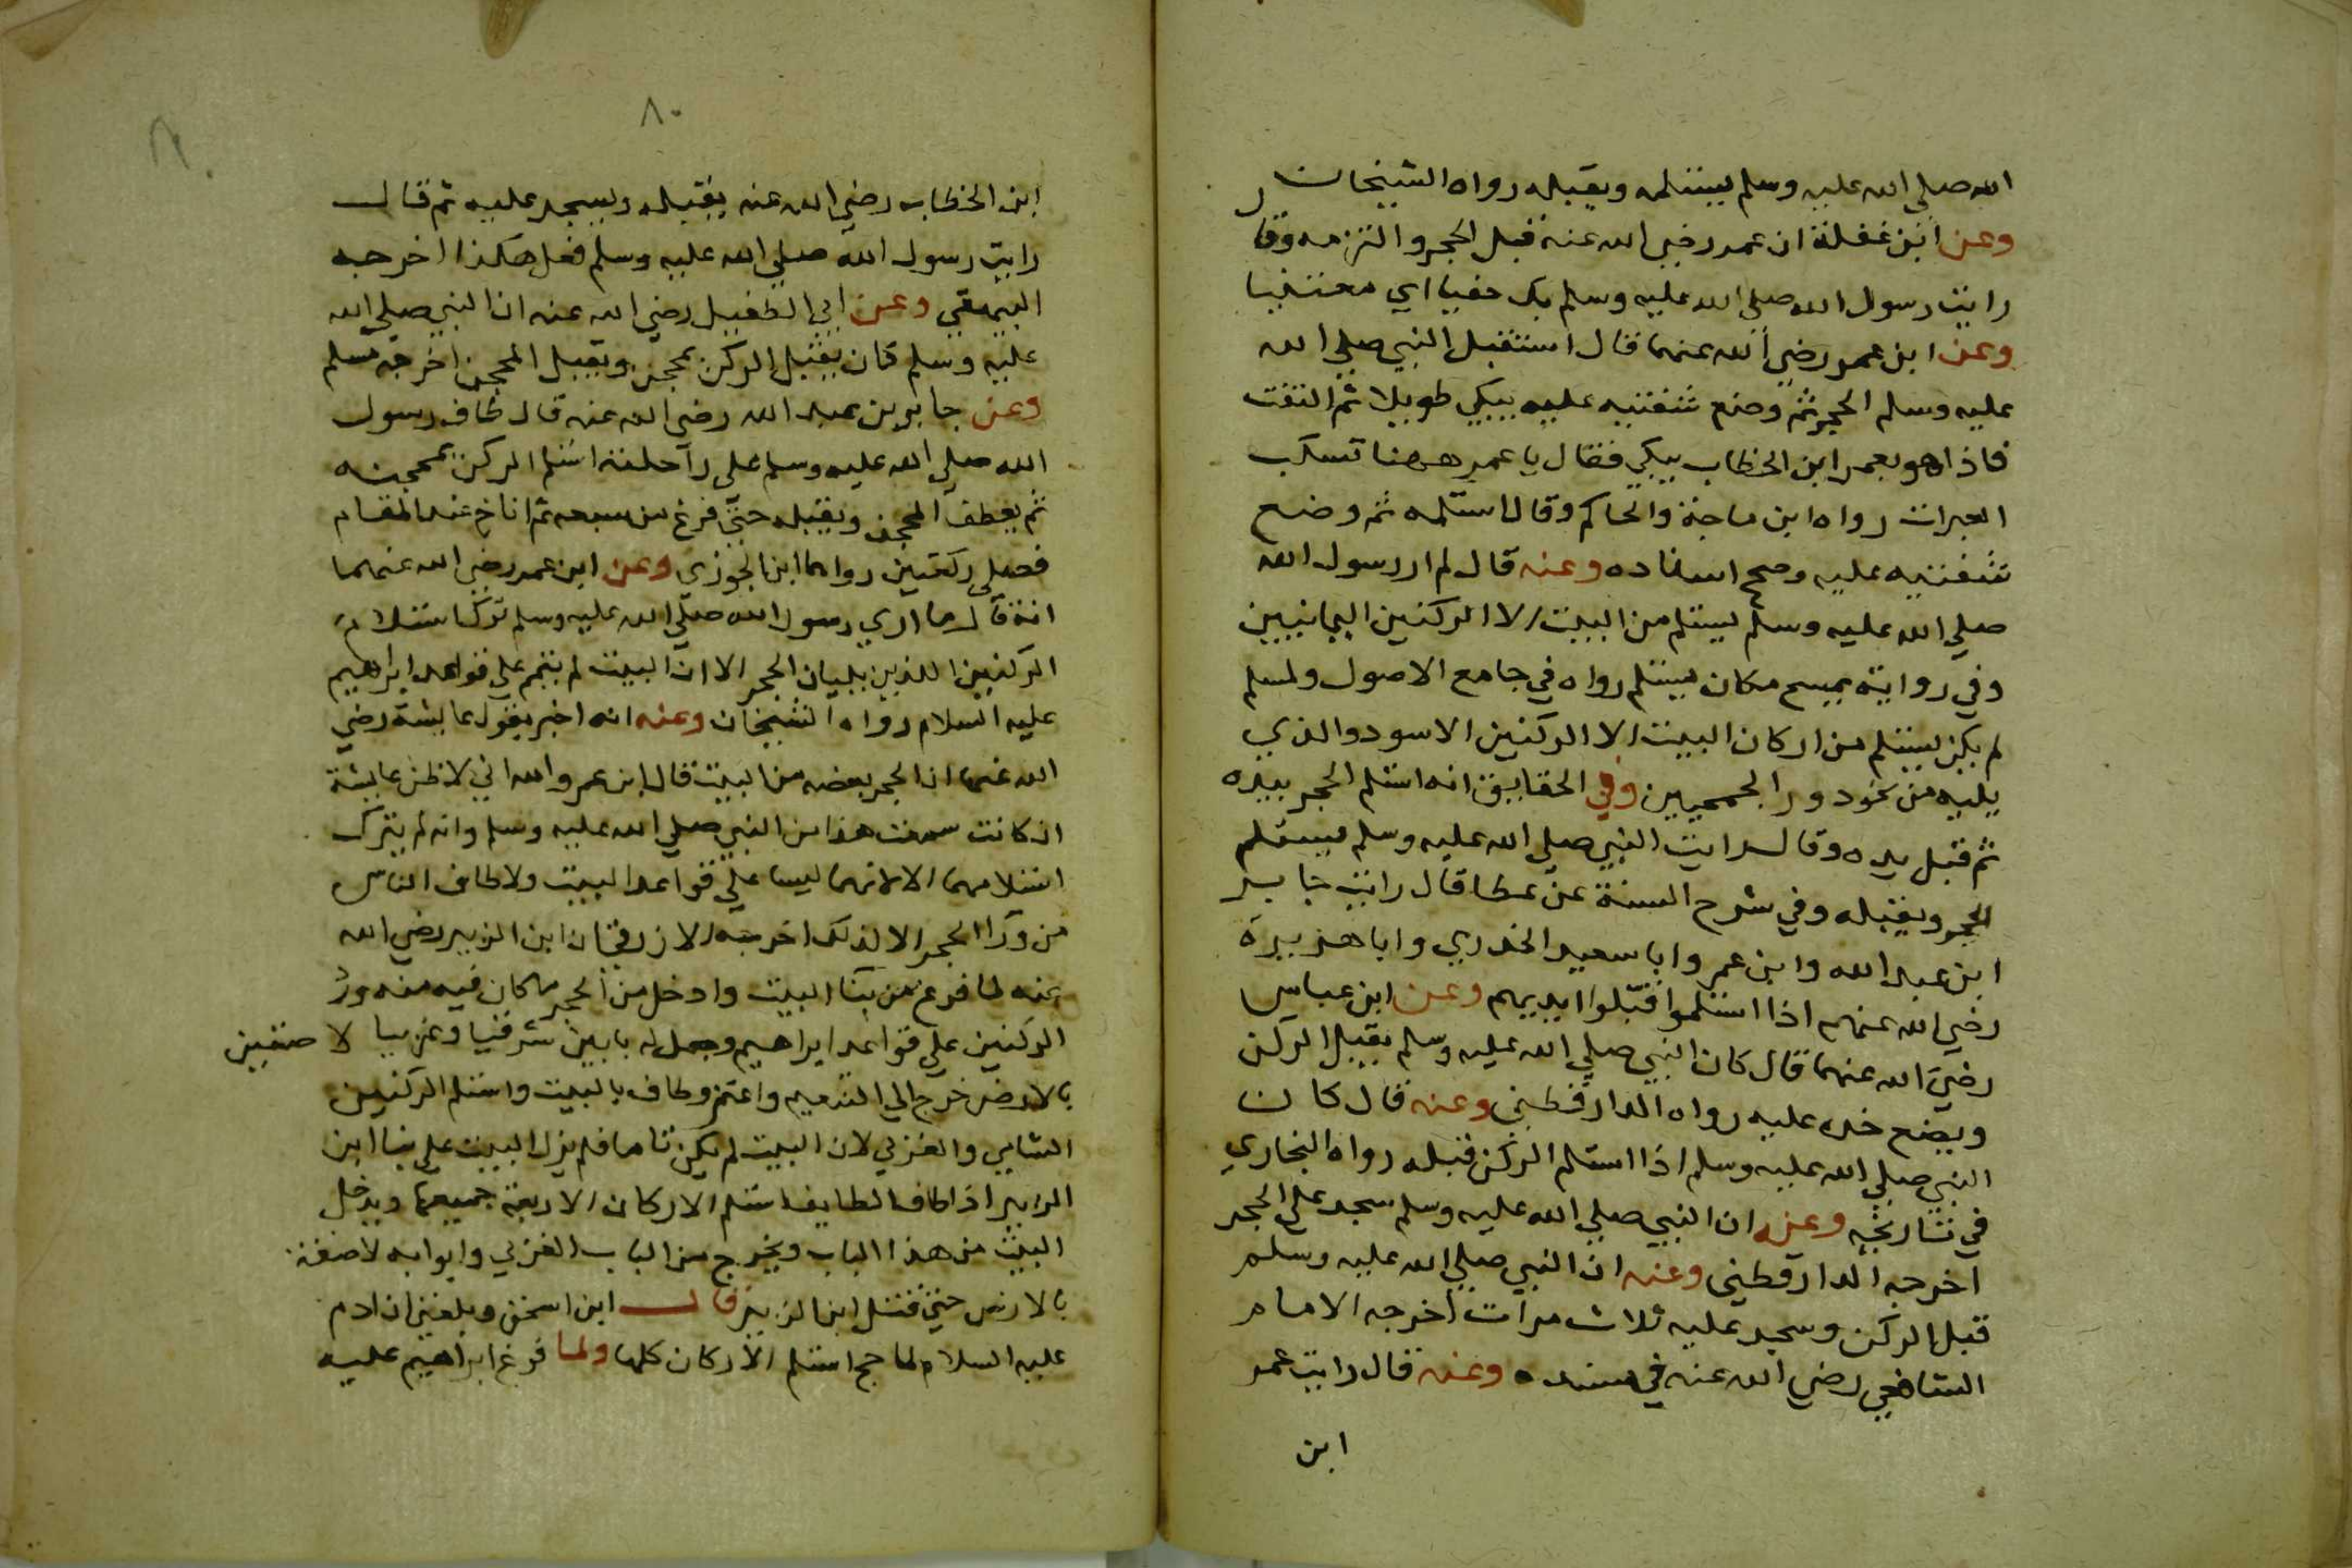 الله صلي الله عليه وسلم يستلمه ويقبله رواه الشيخان
وعن ابن غفلة ان عمر رضي الله عنه قبل الحجر والتزمه وقال
رايت رسول الله صلي الله عليه وسلم بك حفيا اي معتنيا
وعن ابن عمر رضي الله عنهما قال استقبل النبي صلي الله
عليه وسلم الحجر ثم وضع شفتيه عليه يبكي طويلا ثم التفت
فاذا هو بعمر ابن الخطاب يبكي فقال يا عمر ههنا تسكب
العبرات رواه ابن ماجة والحاكم وقال استلمه ثم وضع
شفتيه عليه وصحح اسناده وعنه قال لم ار رسول الله
صلي الله عليه وسلم يستلم من البيت الا الركنين اليمانيين
وفي رواية يمسح مكان يستلم رواه في جامع الاصول ولمسلم
لم يكن يستلم من اركان البيت الا الركنين الاسود والذي
يليه من نحو دور الجمحيين وفي الحقايق انه استلم الحجر بيده
ثم قبل يده وقال رايت النبي صلي الله عليه وسلم يستلم
الحجر ويقبله وفي شرح السنة عن عطا قال رايت جابر
ابن عبد الله وابن عمر وابا سعيد الخدري وابا هريرة
رضي الله عنهم اذا استلموا قبلوا ايديهم وعن ابن عباس
رضي الله عنهما قال كان النبي صلي الله عليه وسلم يقبل الركن
ويضع خده عليه رواه الدارقطني وعنه قال كان
النبي صلي الله عليه وسلم اذا استلم الركن قبله رواه البخاري
في تاريخه وعنه ان النبي صلي الله عليه وسلم سجد علي الحجر
اخرجه الدارقطني وعنه ان النبي صلي الله عليه وسلم
قبل الركن وسجد عليه ثلاث مرات اخرجه الامام
الشافعي رضي الله عنه في مسنده وعنه قال رايت عمر
ابن
٨٠
ابن الخطاب رضي الله عنه يقبله ويسجد عليه ثم قال
رايت رسول الله صلي الله عليه وسلم فعل هكذا اخرجه
البيهقي وعن ابي الطفيل رضي الله عنه ان النبي صلي الله
عليه وسلم كان يقبل الركن بمحجن ويقبل المحجن اخرجه مسلم
وعن جابر بن عبد الله رضي الله عنه قال طاف رسول
الله صلي الله عليه وسلم علي راحلته استلم الركن بمحجنه
ثم يعطف المحجن ويقبله حتي فرغ من سبعه ثم اناخ عند المقام
فصلي ركعتين رواهما ابن الجوزي وعن ابن عمر رضي الله عنهما
انه قال ما اري رسول الله صلي الله عليه وسلم ترك استلام
الركنين اللذين يليان الحجر الا ان البيت لم يتم علي قواعد ابراهيم
عليه السلام رواه الشيخان وعنه انه اخبر بقول عايشة رضي
الله عنها ان الحجر بعضه من البيت قال ابن عمر والله اني لاظن عايشة
ان كانت سمعت هذا من النبي صلي الله عليه وسلم وانه لم يترك
استلامهما الا لانهما ليسا علي قواعد البيت ولا طاف الناس
من ورا الحجر الا لذلك اخرجه الازرقي ان ابن الزبير رضي الله
عنه لما فرغ من بنا البيت وادخل من الحجر ما كان فيه منه ورد
الركنين علي قواعد ابراهيم وجعل له بابين شرقيا وغربيا لاصقين
بالارض خرج الي التنعيم واعتمر وطاف بالبيت واستلم الركنين
الشامي والغربي لان البيت لم يكن تاما فلم يزل البيت علي بنا ابن
الزبير اذا طاف الطايف استلم الاركان الاربعة جميعها ويدخل
البيت من هذا الباب ويخرج من الباب الغربي وابوابه لاصقة
بالارض حتي قتل ابن الزبير قال ابن اسحق وبلغني ان ادم
عليه السلام لما حج استلم الاركان كلها ولما فرغ ابراهيم عليه